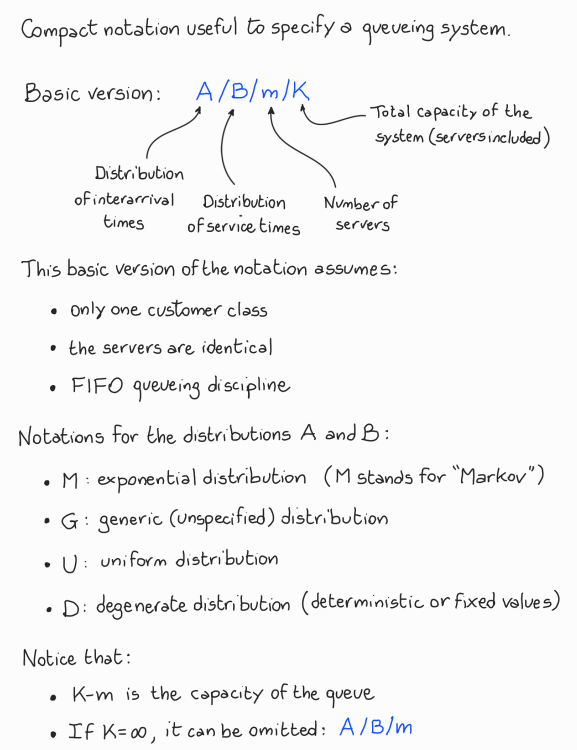 Compact notation useful to specify a queueing system.
Basic version: A/B/m/K
Total capacity of the
system (servers included)
Distribution
of interarrival
times
Distribution
of service times
Number of
servers
This basic version of the notation assumes:
• only one customer class
• the servers are identical
• FIFO queueing discipline
Notations for the distributions A and B:
• M: exponential distribution (M stands for "Markov")
• G: generic (unspecified) distribution
• U: uniform distribution
• D: degenerate distribution (deterministic or fixed values)
Notice that:
• K-m is the capacity of the queue
• If K=∞, it can be omitted: A/B/m